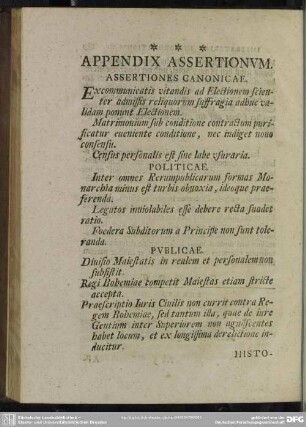 * * *
APPENDIX ASSERTIONVM.
ASSERTIONES CANONICAE.
Excommunicatis vitandis ad Electionem scien-
ter admissis reliquorum suffragia adhuc va-
lidam ponunt Electionem.
Matrimonium sub conditione contractum puri-
ficatur eueniente conditione, nec indiget nouo
consensu.
Census personalis est sine labe vsuraria.
POLITICAE.
Inter omnes Rerumpublicarum formas Mo-
narchia minus est turbis obnoxia, ideoque prae-
ferenda.
Legatos inuiolabiles esse debere recta suadet
ratio.
Foedera Subditorum a Principe non sunt tole-
randa.
PVBLICAE.
Diuisio Maiestatis in realem et personalem non
subsistit.
Regi Bohemiae competit Maiestas etiam stricte
accepta.
Praescriptio Iuris Ciuilis non currit contra Re-
gem Bohemiae, sed tantum illa, quae de iure
Gentium inter Superiorem non agnoscentes
habet locum, et ex longissima derelictione in-
ducitur.
HISTO-